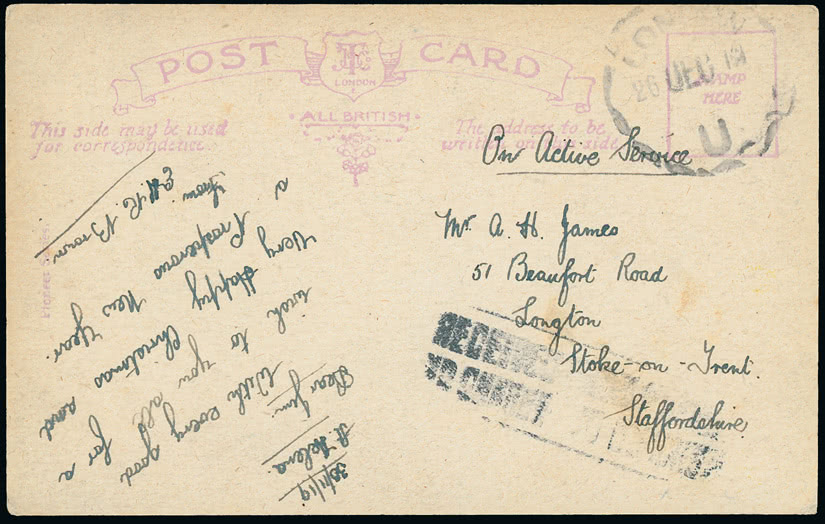 POST CARD
LONDON
ALL BRITISH
This side may be used
for correspondence.
The address to be
written on this side
STAMP
HERE
LONDON
26 DEC 19
U.
On Active Service
Mr. A. H. James
51 Beaufort Road
Longton
Stoke-on-Trent.
Staffordshire.
RECEIVED
NO CHARGE TO BE
30/11/19
St Helena.
Dear Jim:
With every good
wish to you all for a
Very Happy Christmas and
a Prosperous New Year.
from
Brown